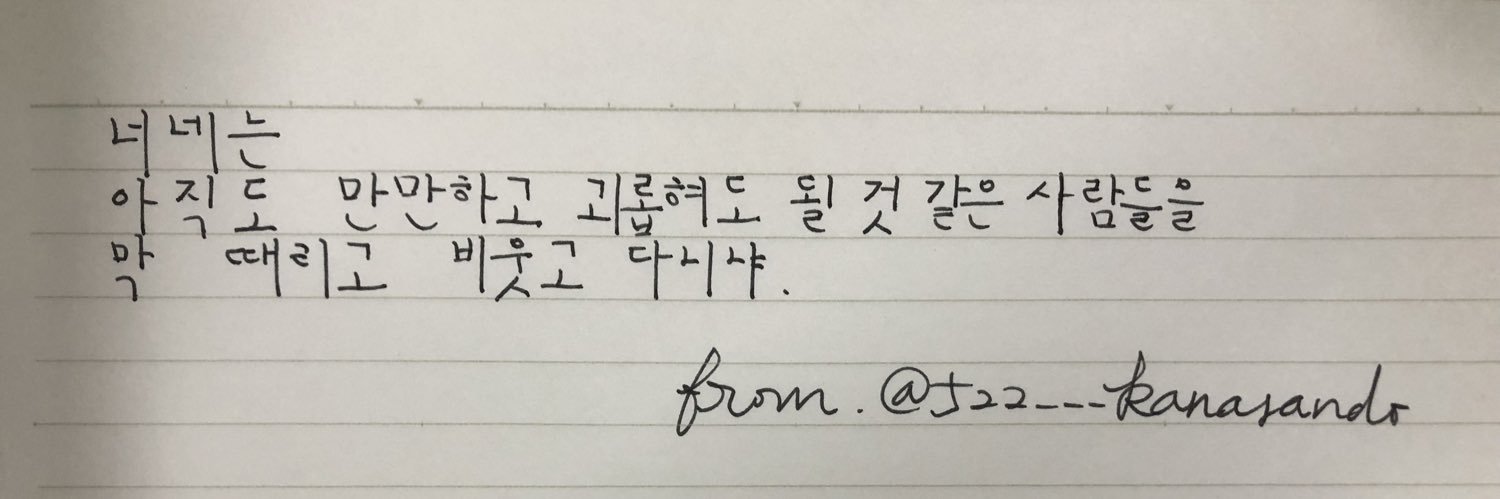 너네는
아직도 만만하고 괴롭혀도 될 것 같은 사람들을
막 때리고 비웃고 다니냐.
from. @522___kanasando